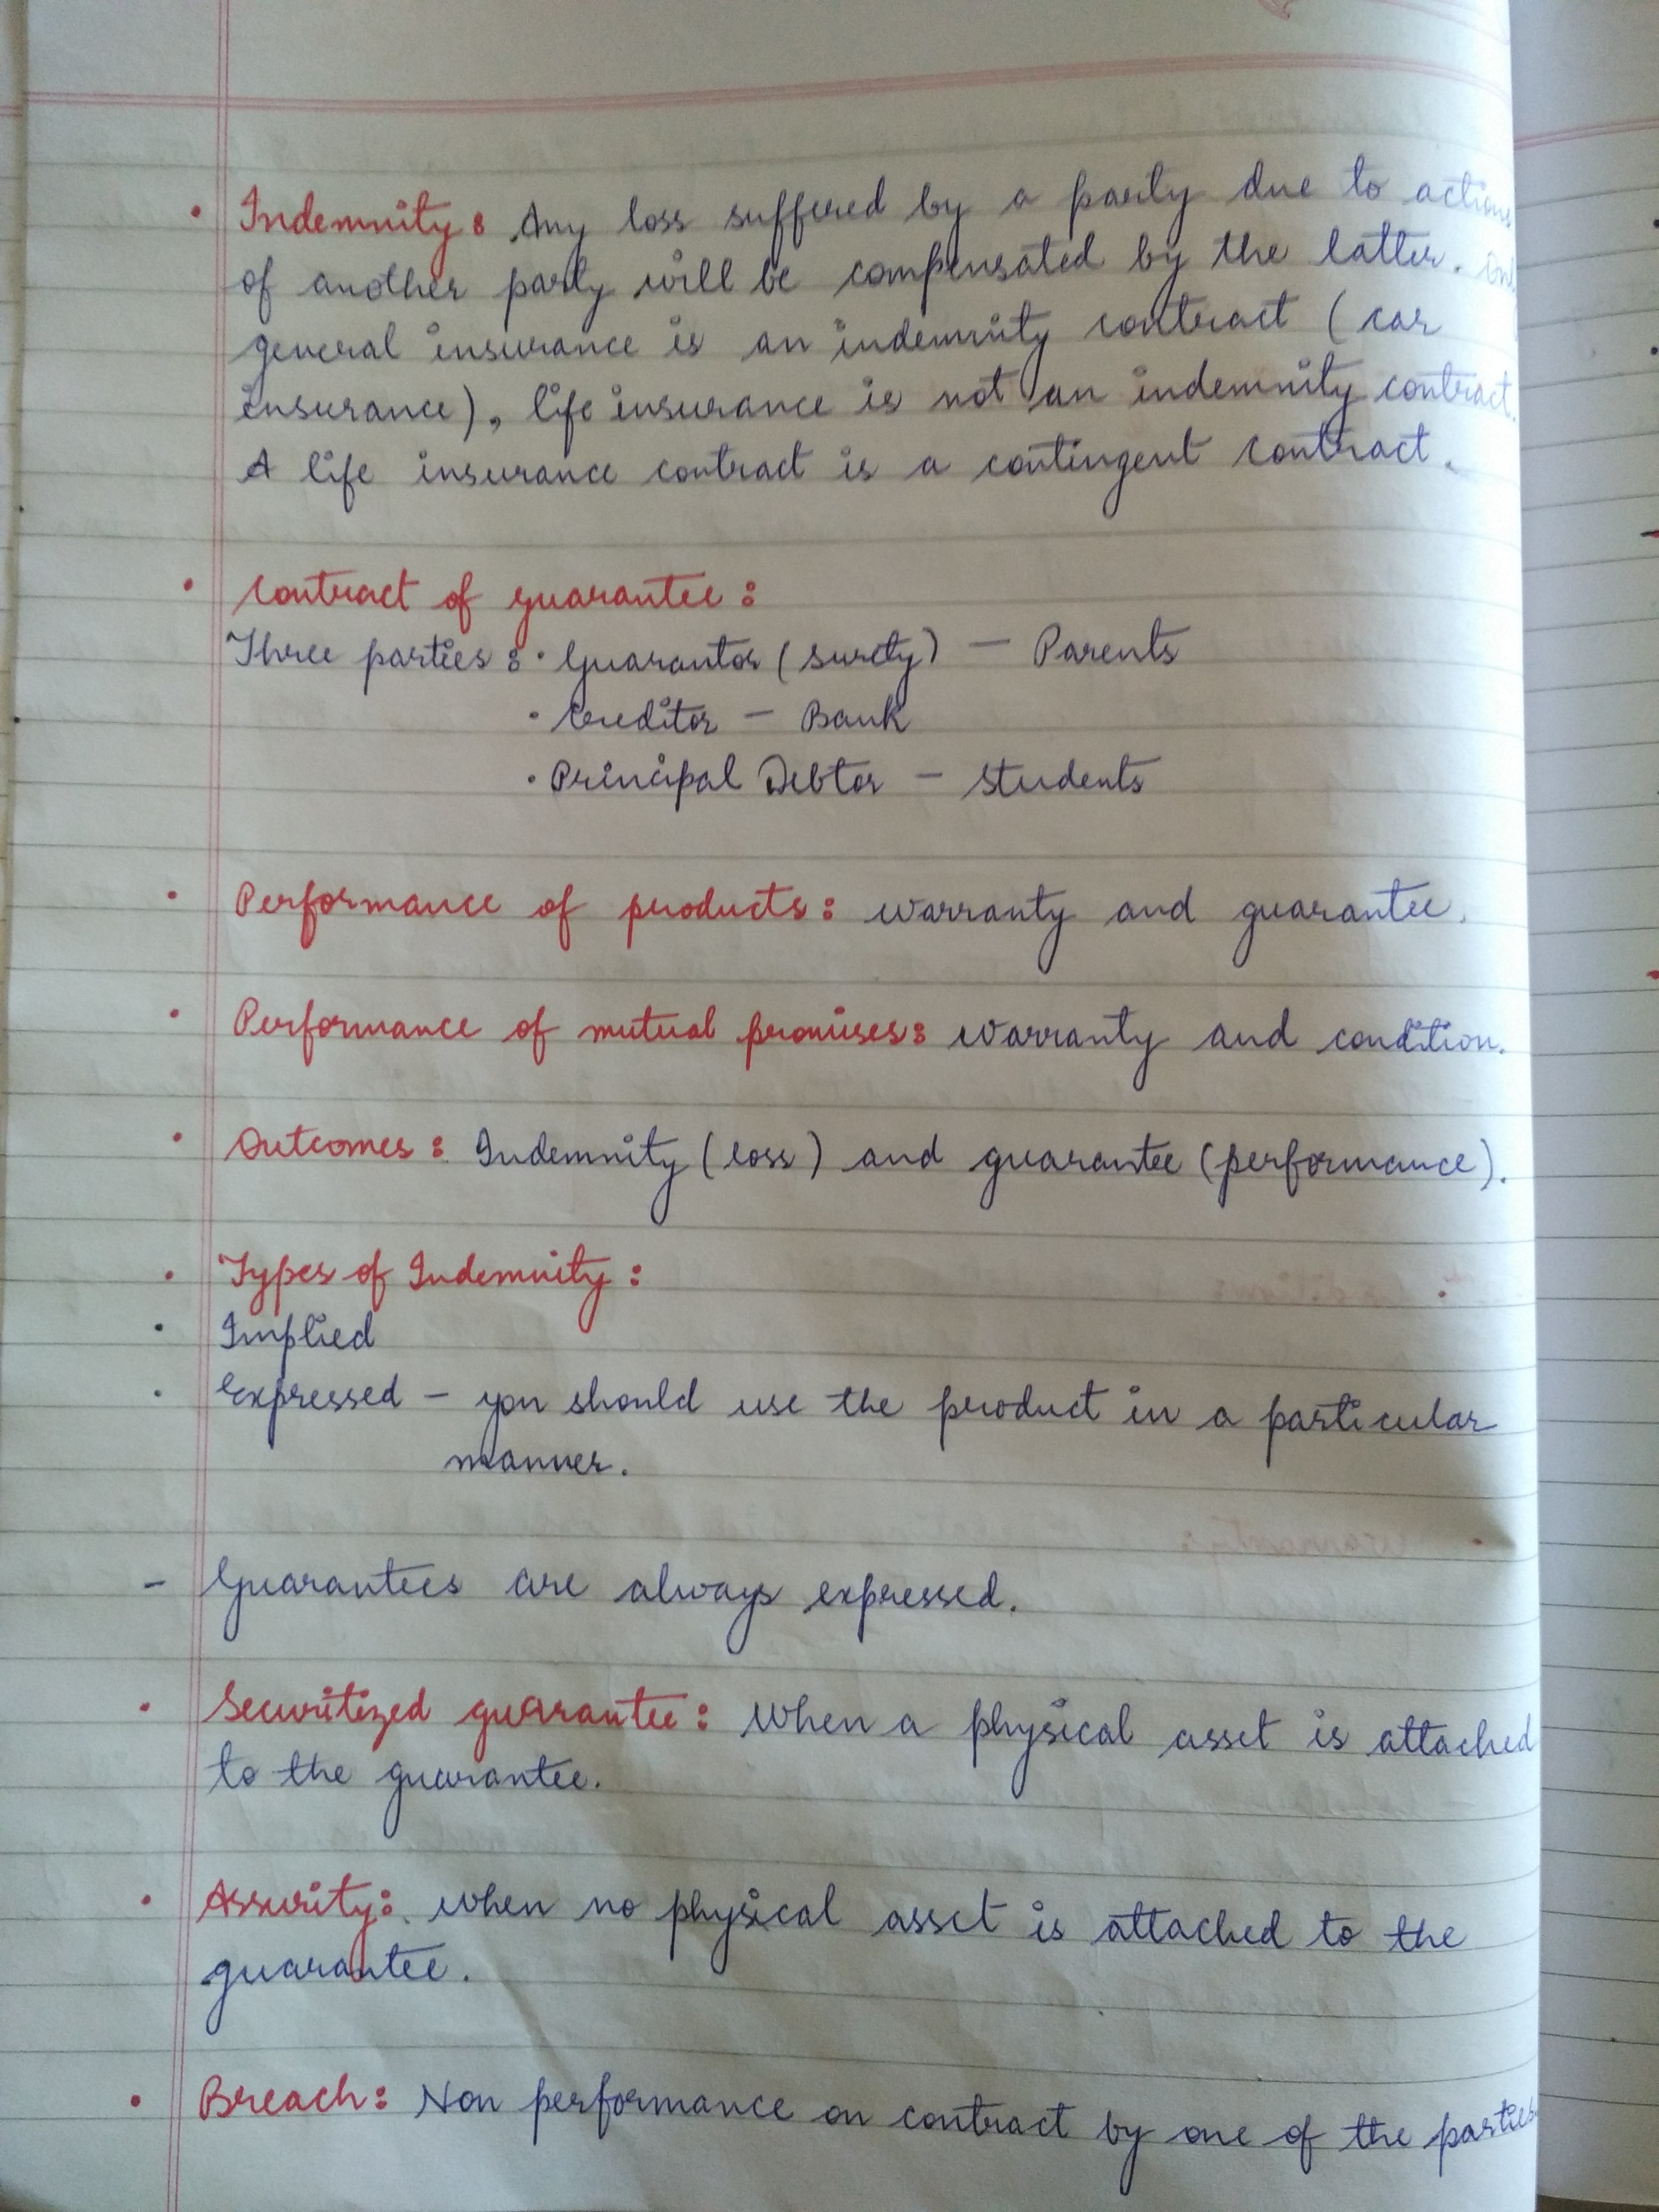 • Indemnity: Any loss suffered by a party due to actions
of another party will be compensated by the latter.
general insurance is an indemnity contract (car
insurance), life insurance is not an indemnity contract.
A life insurance contract is a contingent contract.
• Contract of guarantee:
Three parties: • Guarantor (surety) — Parents
• Creditor — Bank
• Principal Debtor — students
• Performance of products: warranty and guarantee.
• Performance of mutual promises: warranty and condition.
• Outcomes: Indemnity (loss) and guarantee (performance).
• Types of Indemnity:
• Implied
• Expressed — you should use the product in a particular
manner.
- Guarantees are always expressed.
• Securitized guarantee: When a physical asset is attached
to the guarantee.
• Assurity: when no physical asset is attached to the
guarantee.
• Breach: Non performance on contract by one of the parties